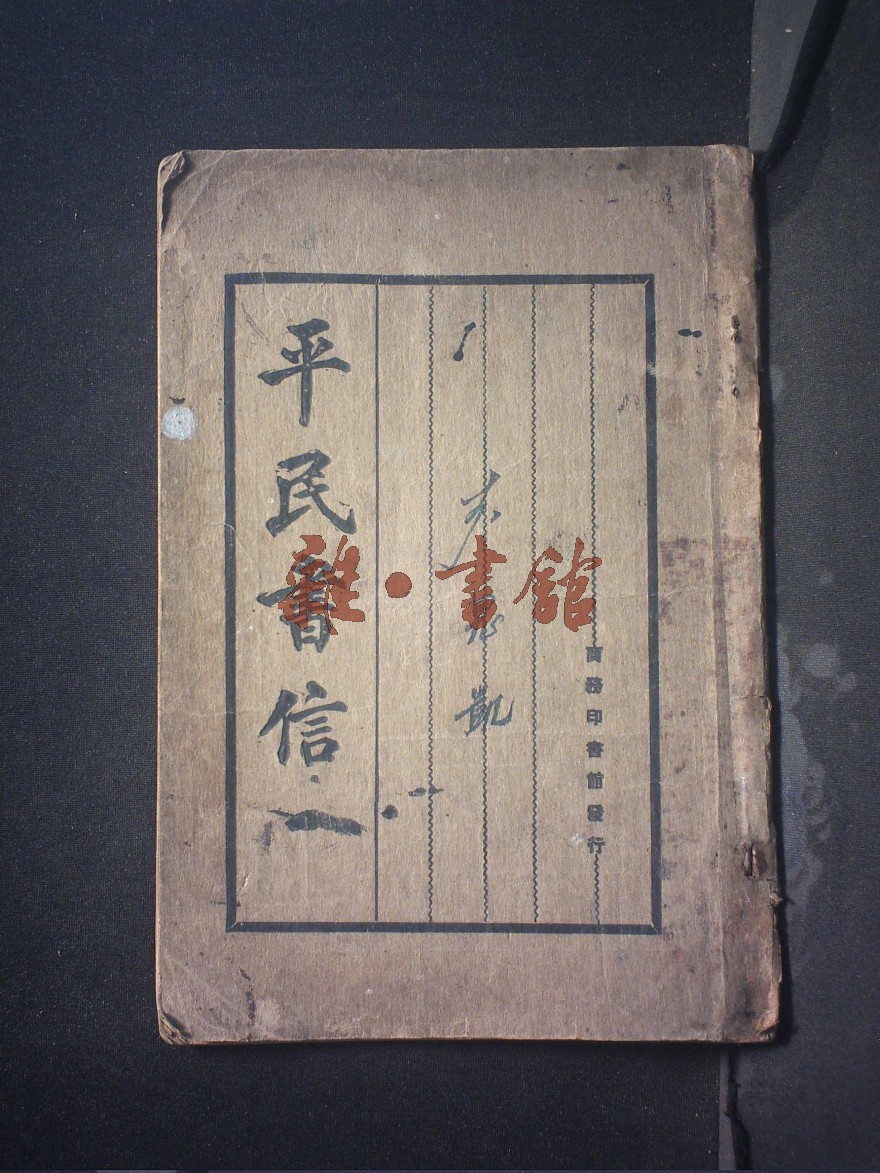 商務印書館發行
凱
平民書信
雜·書館